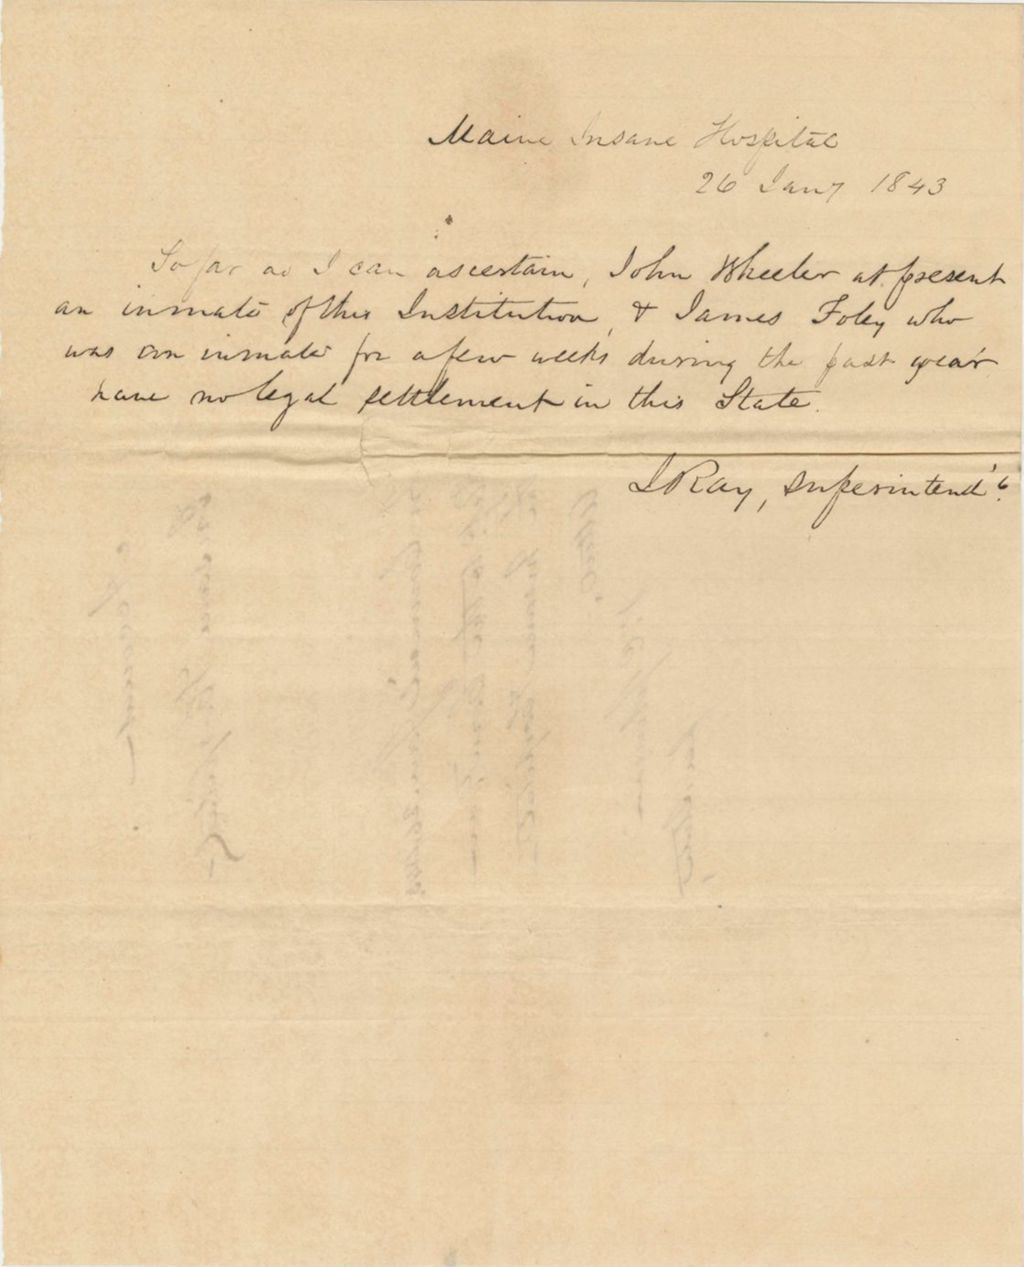 Maine Insane Hospital
26 Jany 1843
So far as I can ascertain, John Wheeler at present
an inmate of this Institution, & James Foley who
was an inmate for a few weeks during the past year
have no legal settlement in this State.
I Ray, Superintend't.